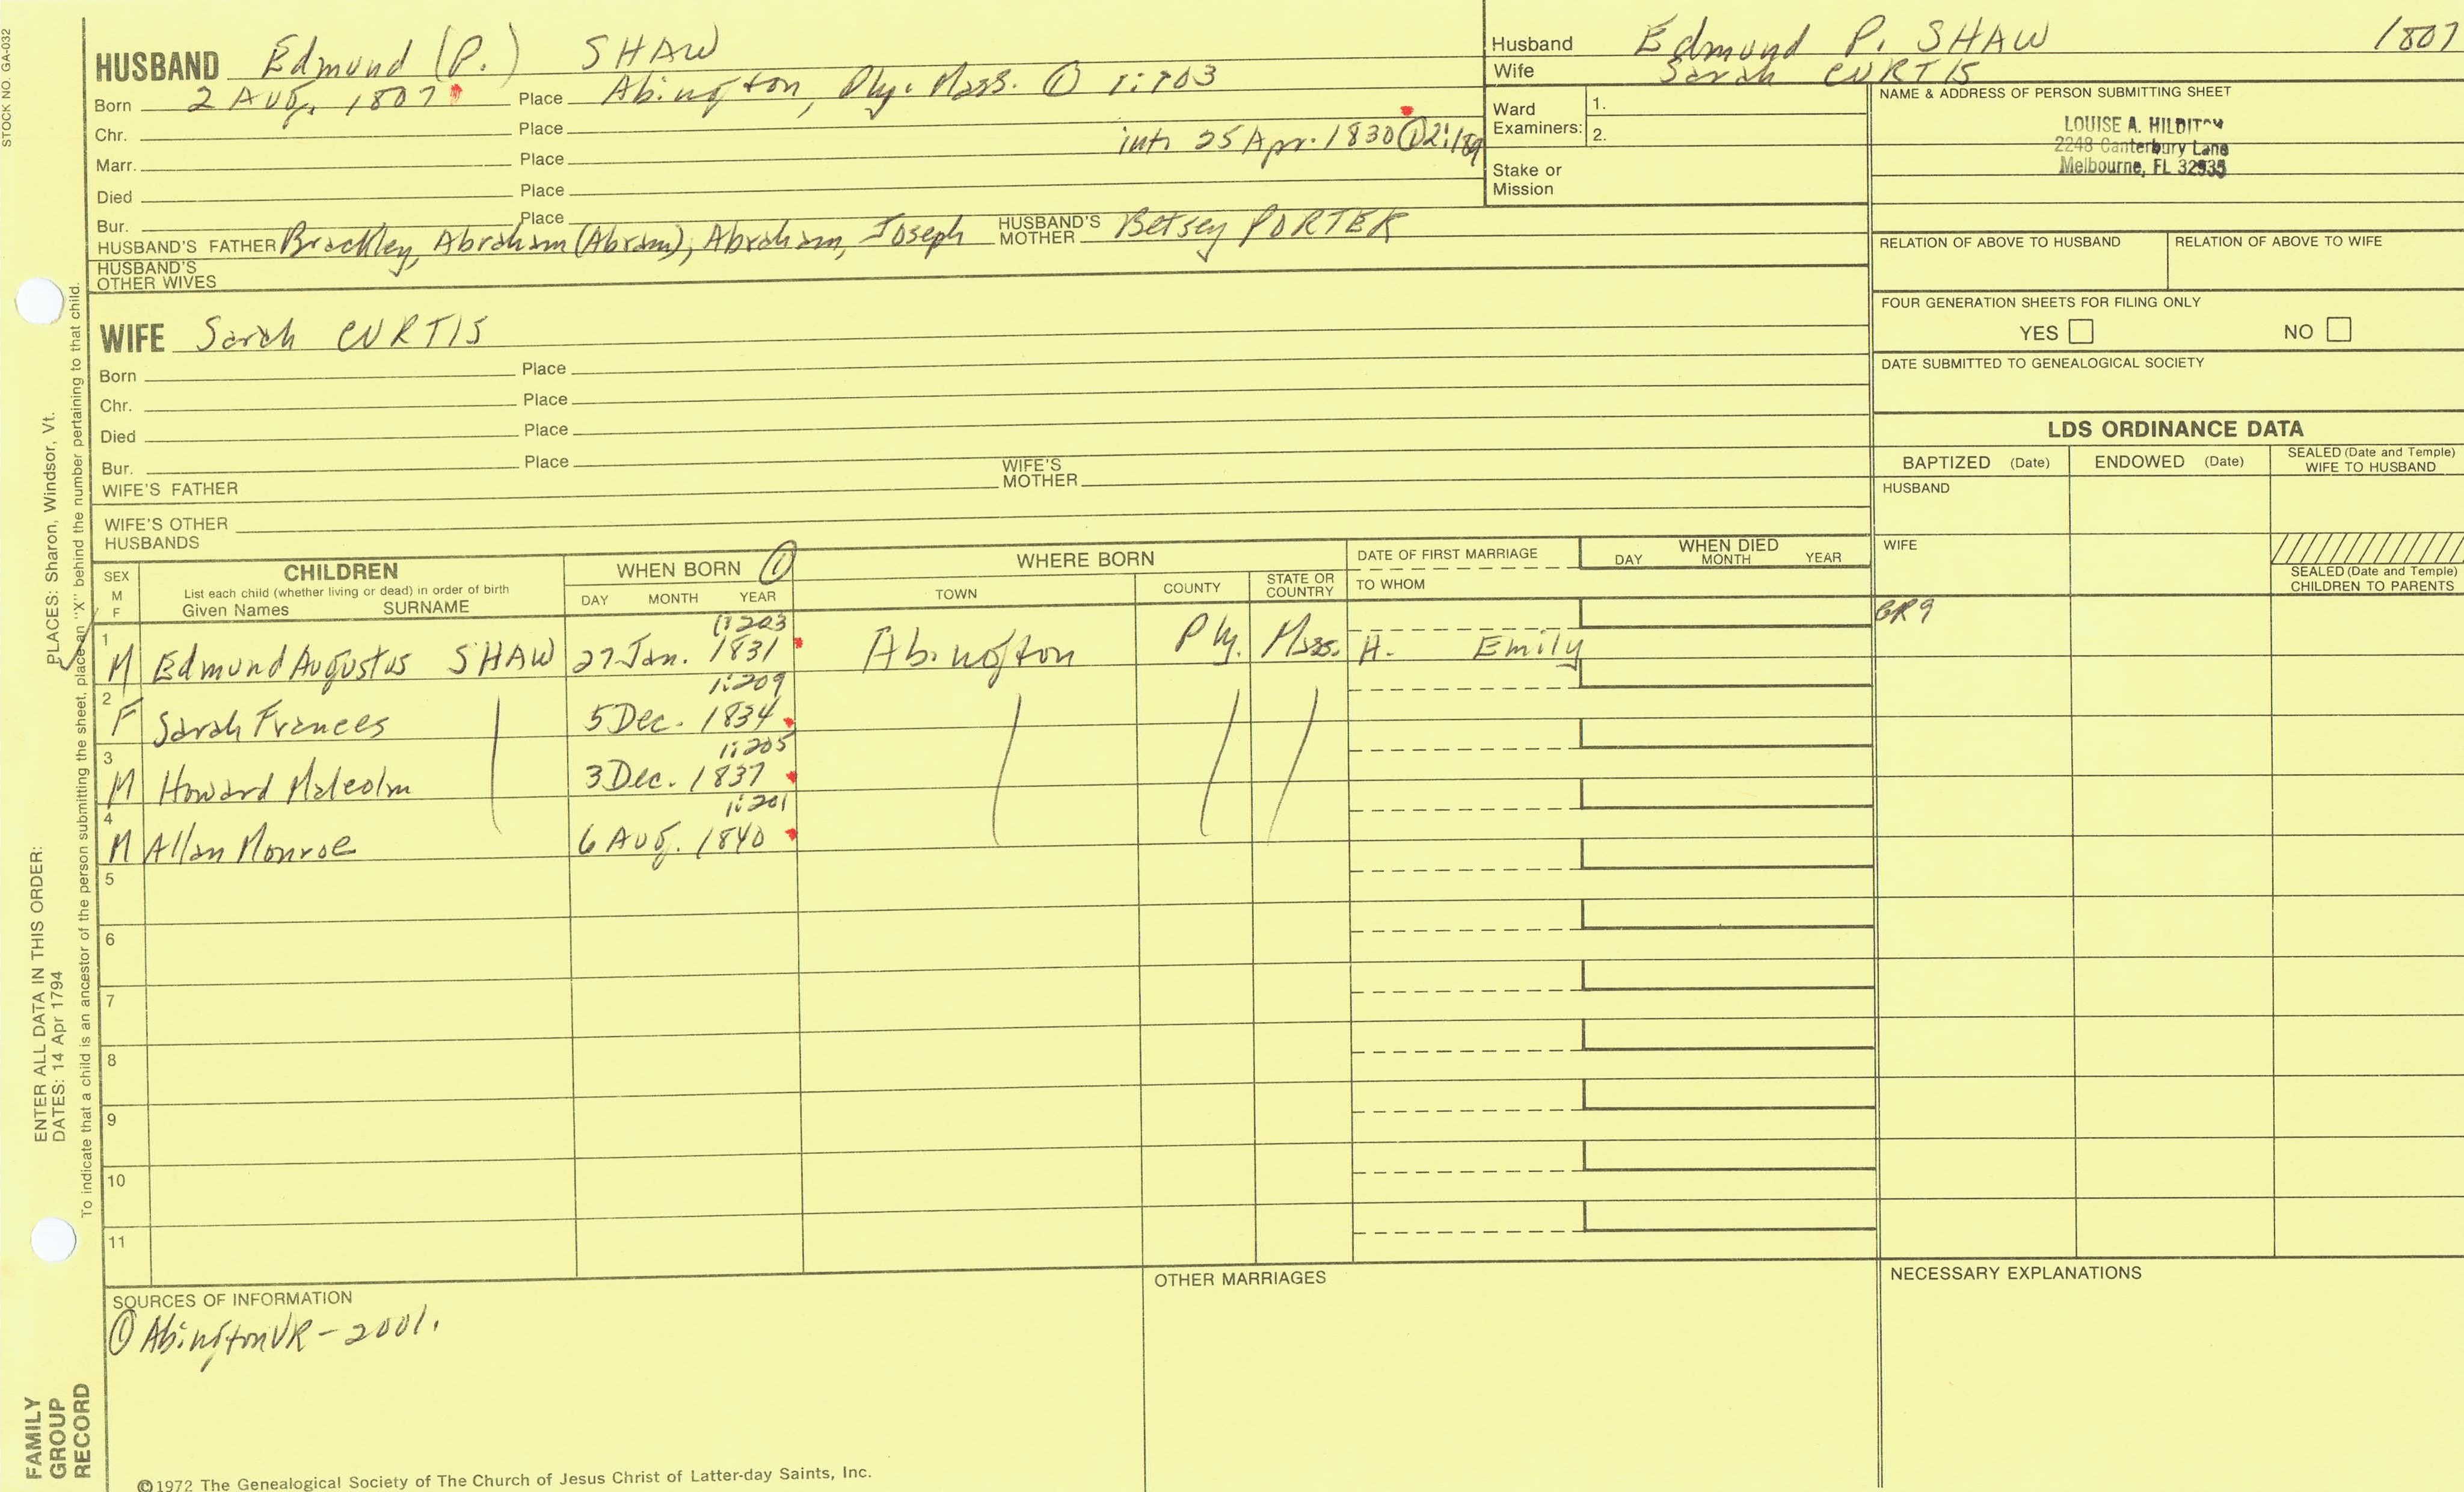 STOCK NO. GA-032
HUSBAND Edmund (P.) SHAW
Born 2 Aug. 1807 Place Abington, Ply. Mass. ① 1:203
Chr. Place
Marr. Place int. 25 Apr. 1830 ① 2:189
Died Place
Bur. Place
HUSBAND'S FATHER Brackley, Abraham (Abram), Abraham, Joseph HUSBAND'S MOTHER Betsey PORTER
HUSBAND'S OTHER WIVES
WIFE Sarah CURTIS
Born Place
Chr. Place
Died Place
Bur. Place
WIFE'S FATHER WIFE'S MOTHER
WIFE'S OTHER HUSBANDS
Husband Edmund P. SHAW 1807
Wife Sarah CURTIS
Ward Examiners: 1.
2.
Stake or Mission
NAME & ADDRESS OF PERSON SUBMITTING SHEET
LOUISE A. HILDITCH
2248 Canterbury Lane
Melbourne, FL 32935
RELATION OF ABOVE TO HUSBAND RELATION OF ABOVE TO WIFE
FOUR GENERATION SHEETS FOR FILING ONLY
YES NO
DATE SUBMITTED TO GENEALOGICAL SOCIETY
LDS ORDINANCE DATA
BAPTIZED (Date) ENDOWED (Date) SEALED (Date and Temple) WIFE TO HUSBAND
HUSBAND
WIFE
SEALED (Date and Temple) CHILDREN TO PARENTS
SEX M F
CHILDREN
List each child (whether living or dead) in order of birth
Given Names SURNAME
WHEN BORN ①
DAY MONTH YEAR
WHERE BORN
TOWN COUNTY STATE OR COUNTRY
DATE OF FIRST MARRIAGE
TO WHOM
WHEN DIED
DAY MONTH YEAR
1:203
1 M Edmund Augustus SHAW 27 Jan. 1831 Abington Ply. Mass. H. Emily GR9
1:209
2 F Sarah Frances 5 Dec. 1834
1:205
3 M Howard Malcolm 3 Dec. 1837
1:201
4 M Allan Monroe 6 Aug. 1840
5
6
7
8
9
10
11
SOURCES OF INFORMATION
① Abington VR - 2001.
OTHER MARRIAGES
NECESSARY EXPLANATIONS
©1972 The Genealogical Society of The Church of Jesus Christ of Latter-day Saints, Inc.
FAMILY GROUP RECORD
ENTER ALL DATA IN THIS ORDER:
DATES: 14 Apr 1794
PLACES: Sharon, Windsor, Vt.
To indicate that a child is an ancestor of the person submitting the sheet, place an "X" behind the number pertaining to that child.